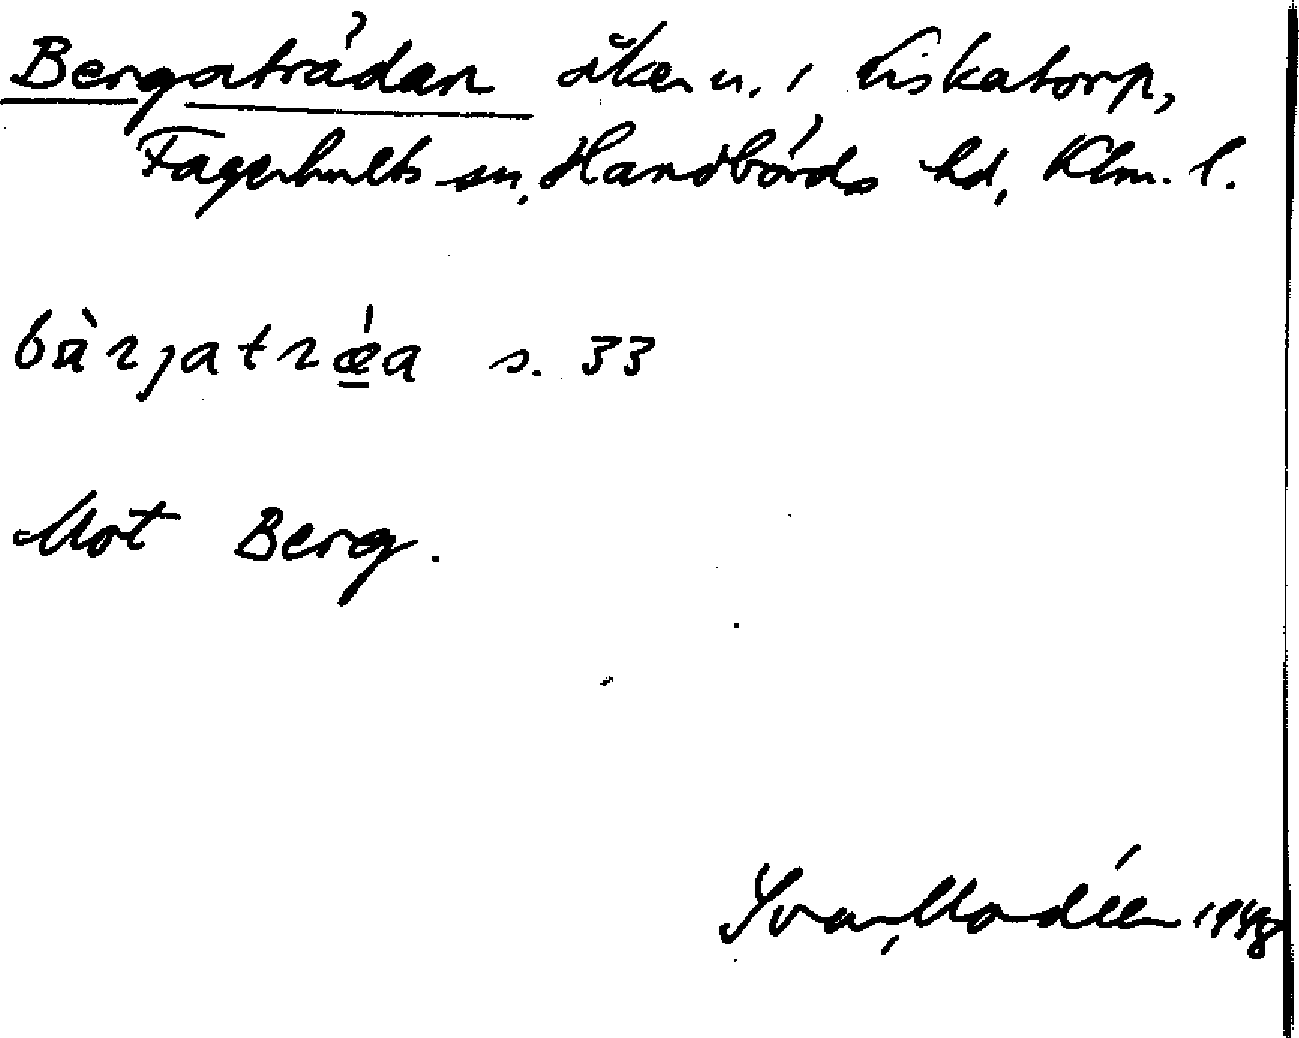 Bergaträdan åkern. i Eiskatorp,
Fagerhults sn, Handbörds hd, Klm. l.
bàrjatrǽa s. 33
Mot Berg.
Ivar Modéer 1948